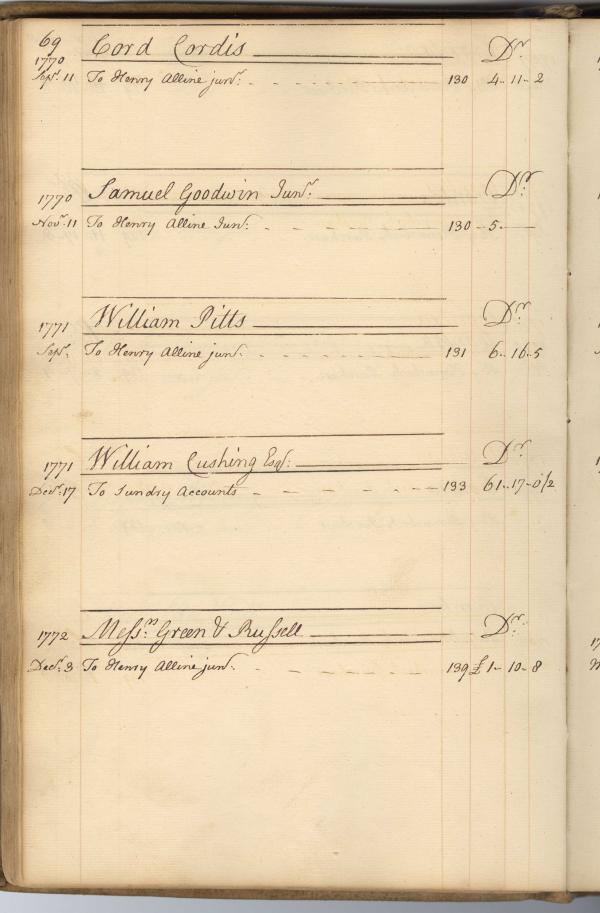 69 Cord Cordis Dr.
1770
Sepr. 11 To Henry Alline junr. 130 4-11-2
1770 Samuel Goodwin Junr. Dr.
Novr. 11 To Henry Alline Junr. 130 5
1771 William Pitts Dr.
Sepr. To Henry Alline junr. 131 6-16-5
1771 William Cushing Esqr. Dr.
Decr. 17 To Sundry Accounts 133 61-17-0 1/2
1772 Messrs. Green & Russell Dr.
Decr. 3 To Henry Alline junr. 139 £1-10-8